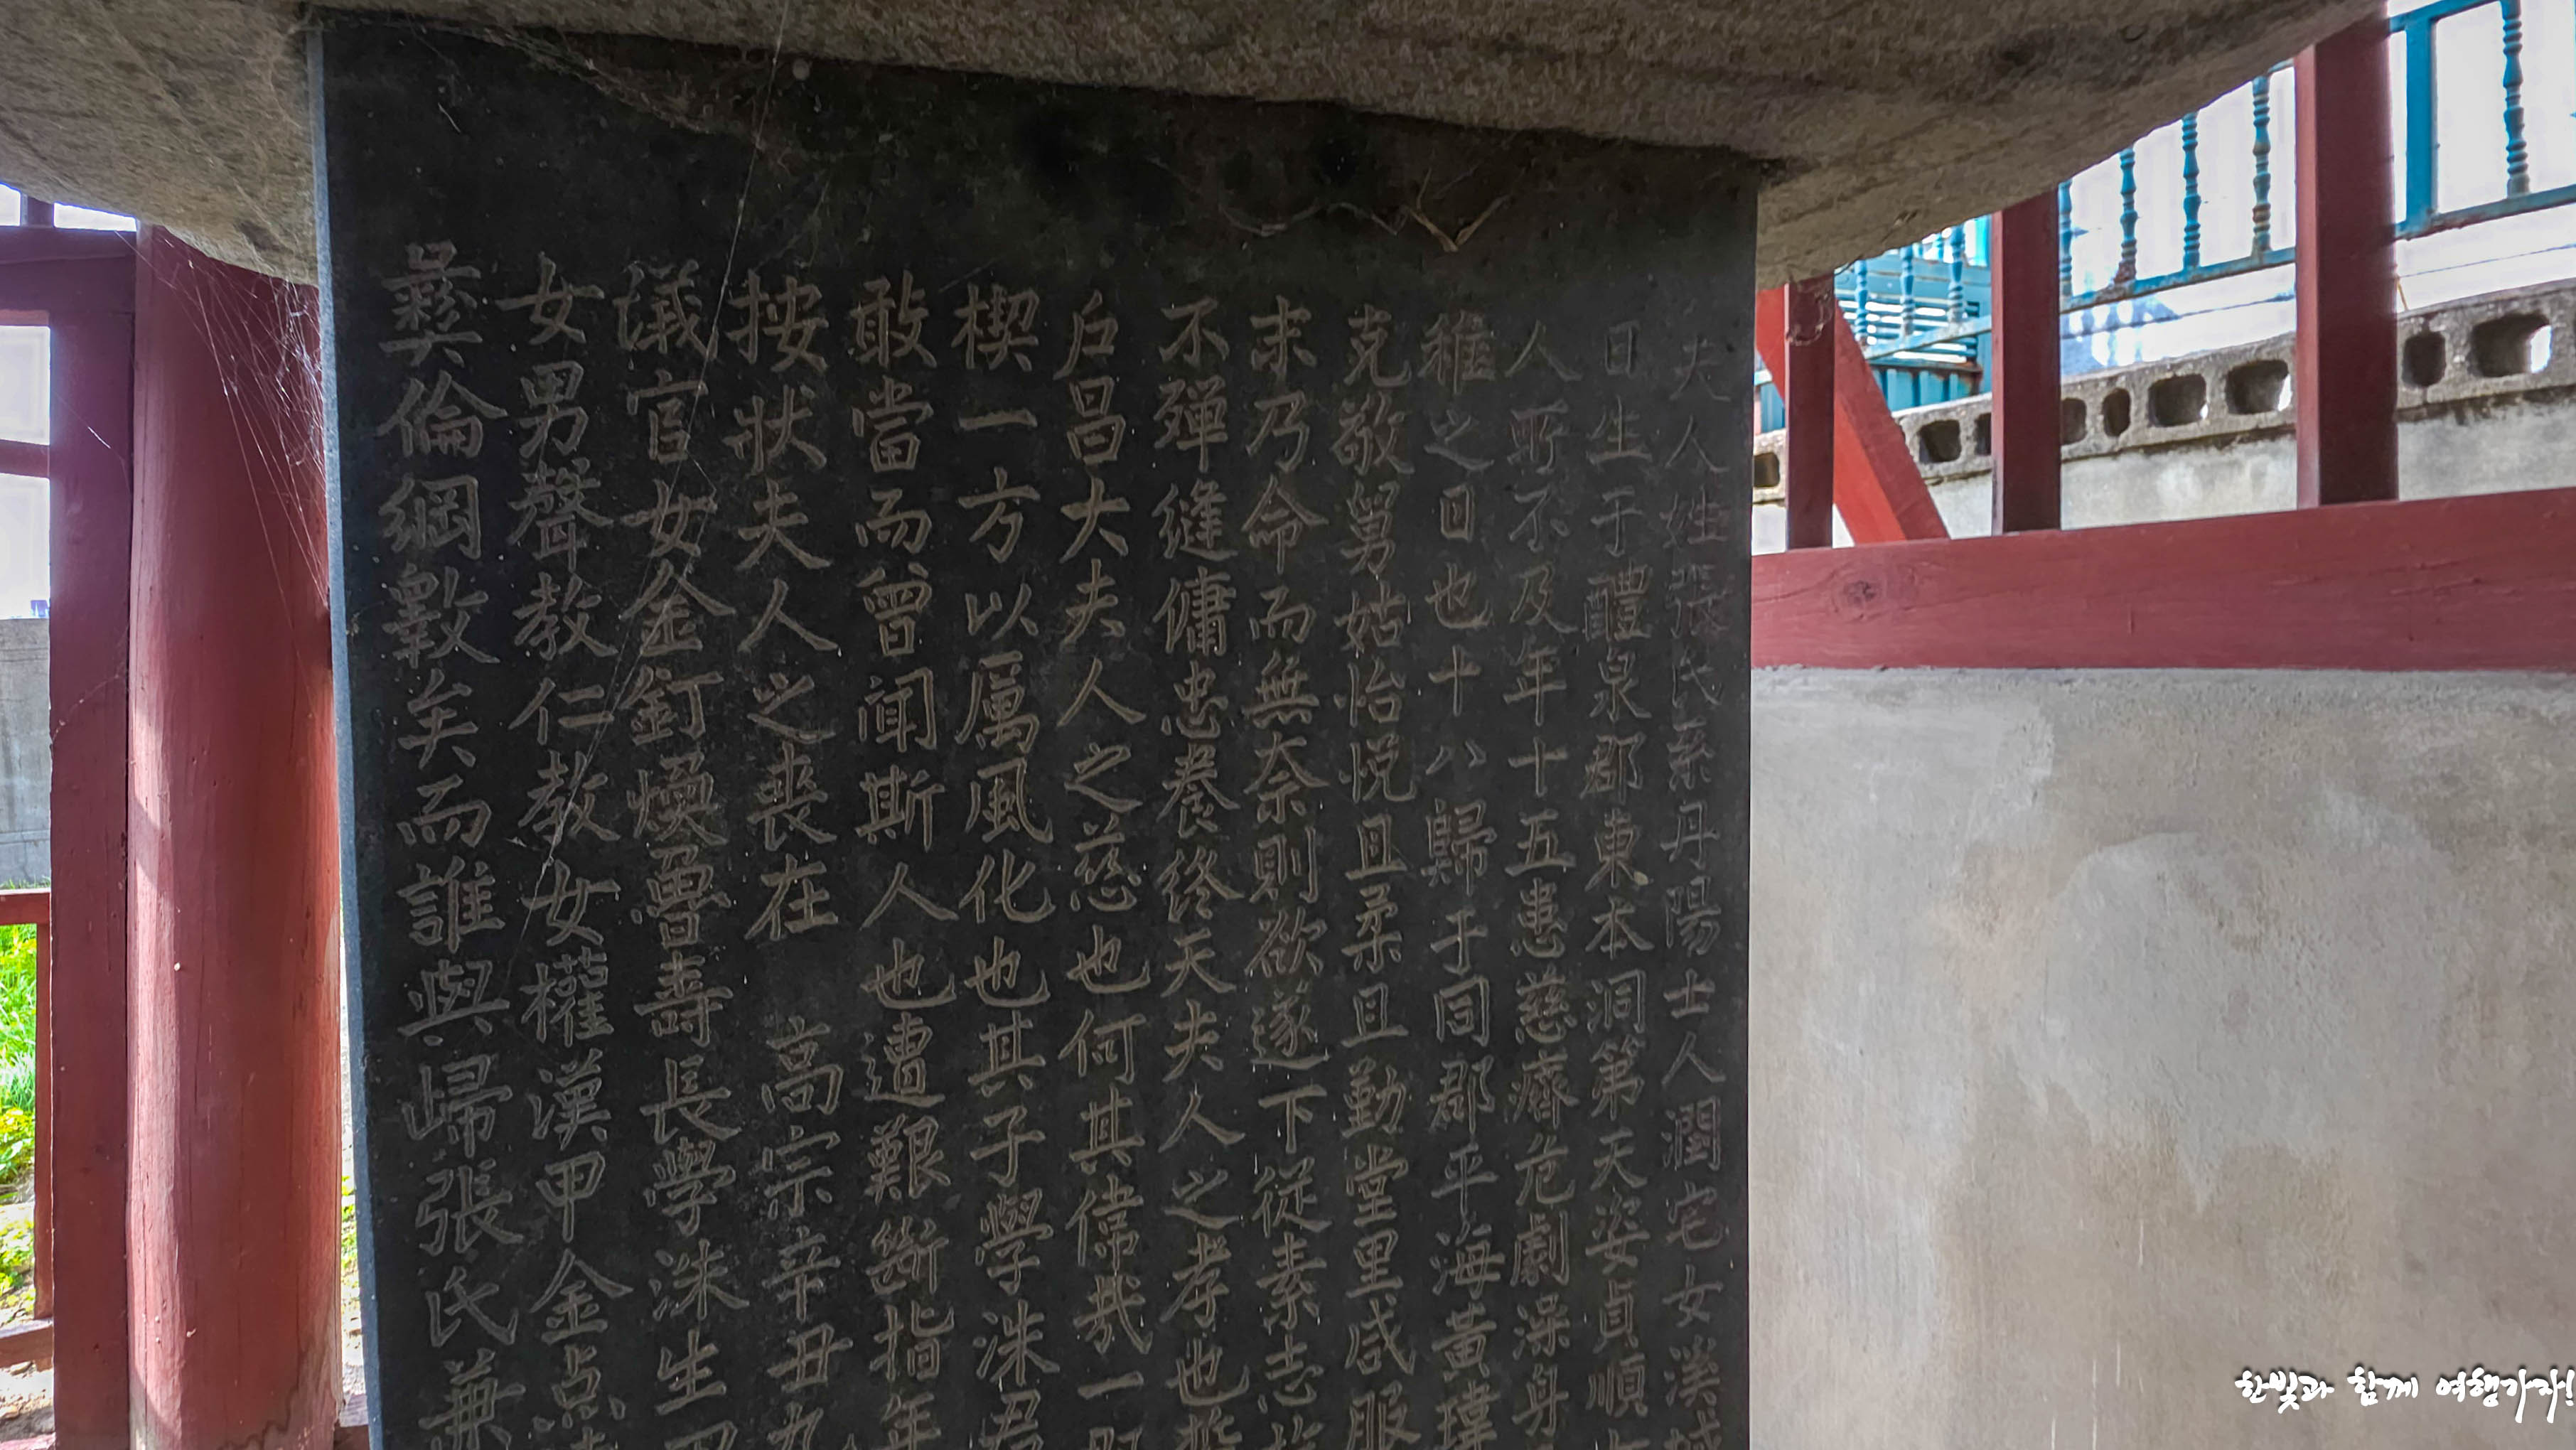 夫人姓張氏系丹陽士人潤宅女溪
日生于醴泉郡東本洞第天姿貞順
人所不及年十五患慈癠危劇澡身
稚之日也十八歸于同郡平海黃璞
克敬舅姑怡悅且柔且勤堂里咸服
末乃命而無奈則欲遂下從素志
不殫縫傭忠養終天夫人之孝也
戶昌大夫人之慈也何其偉哉一
楔一方以厲風化也其子學洙君
敢當而曾闻斯人也遭艱斷指年
按狀夫人之喪在 高宗辛丑九
议官女金釘煥魯壽長學洙生
女男聲教仁教女權漢甲金点
彝倫綱斁矣而誰與歸張氏兼
한빛과 함께 여행가자!